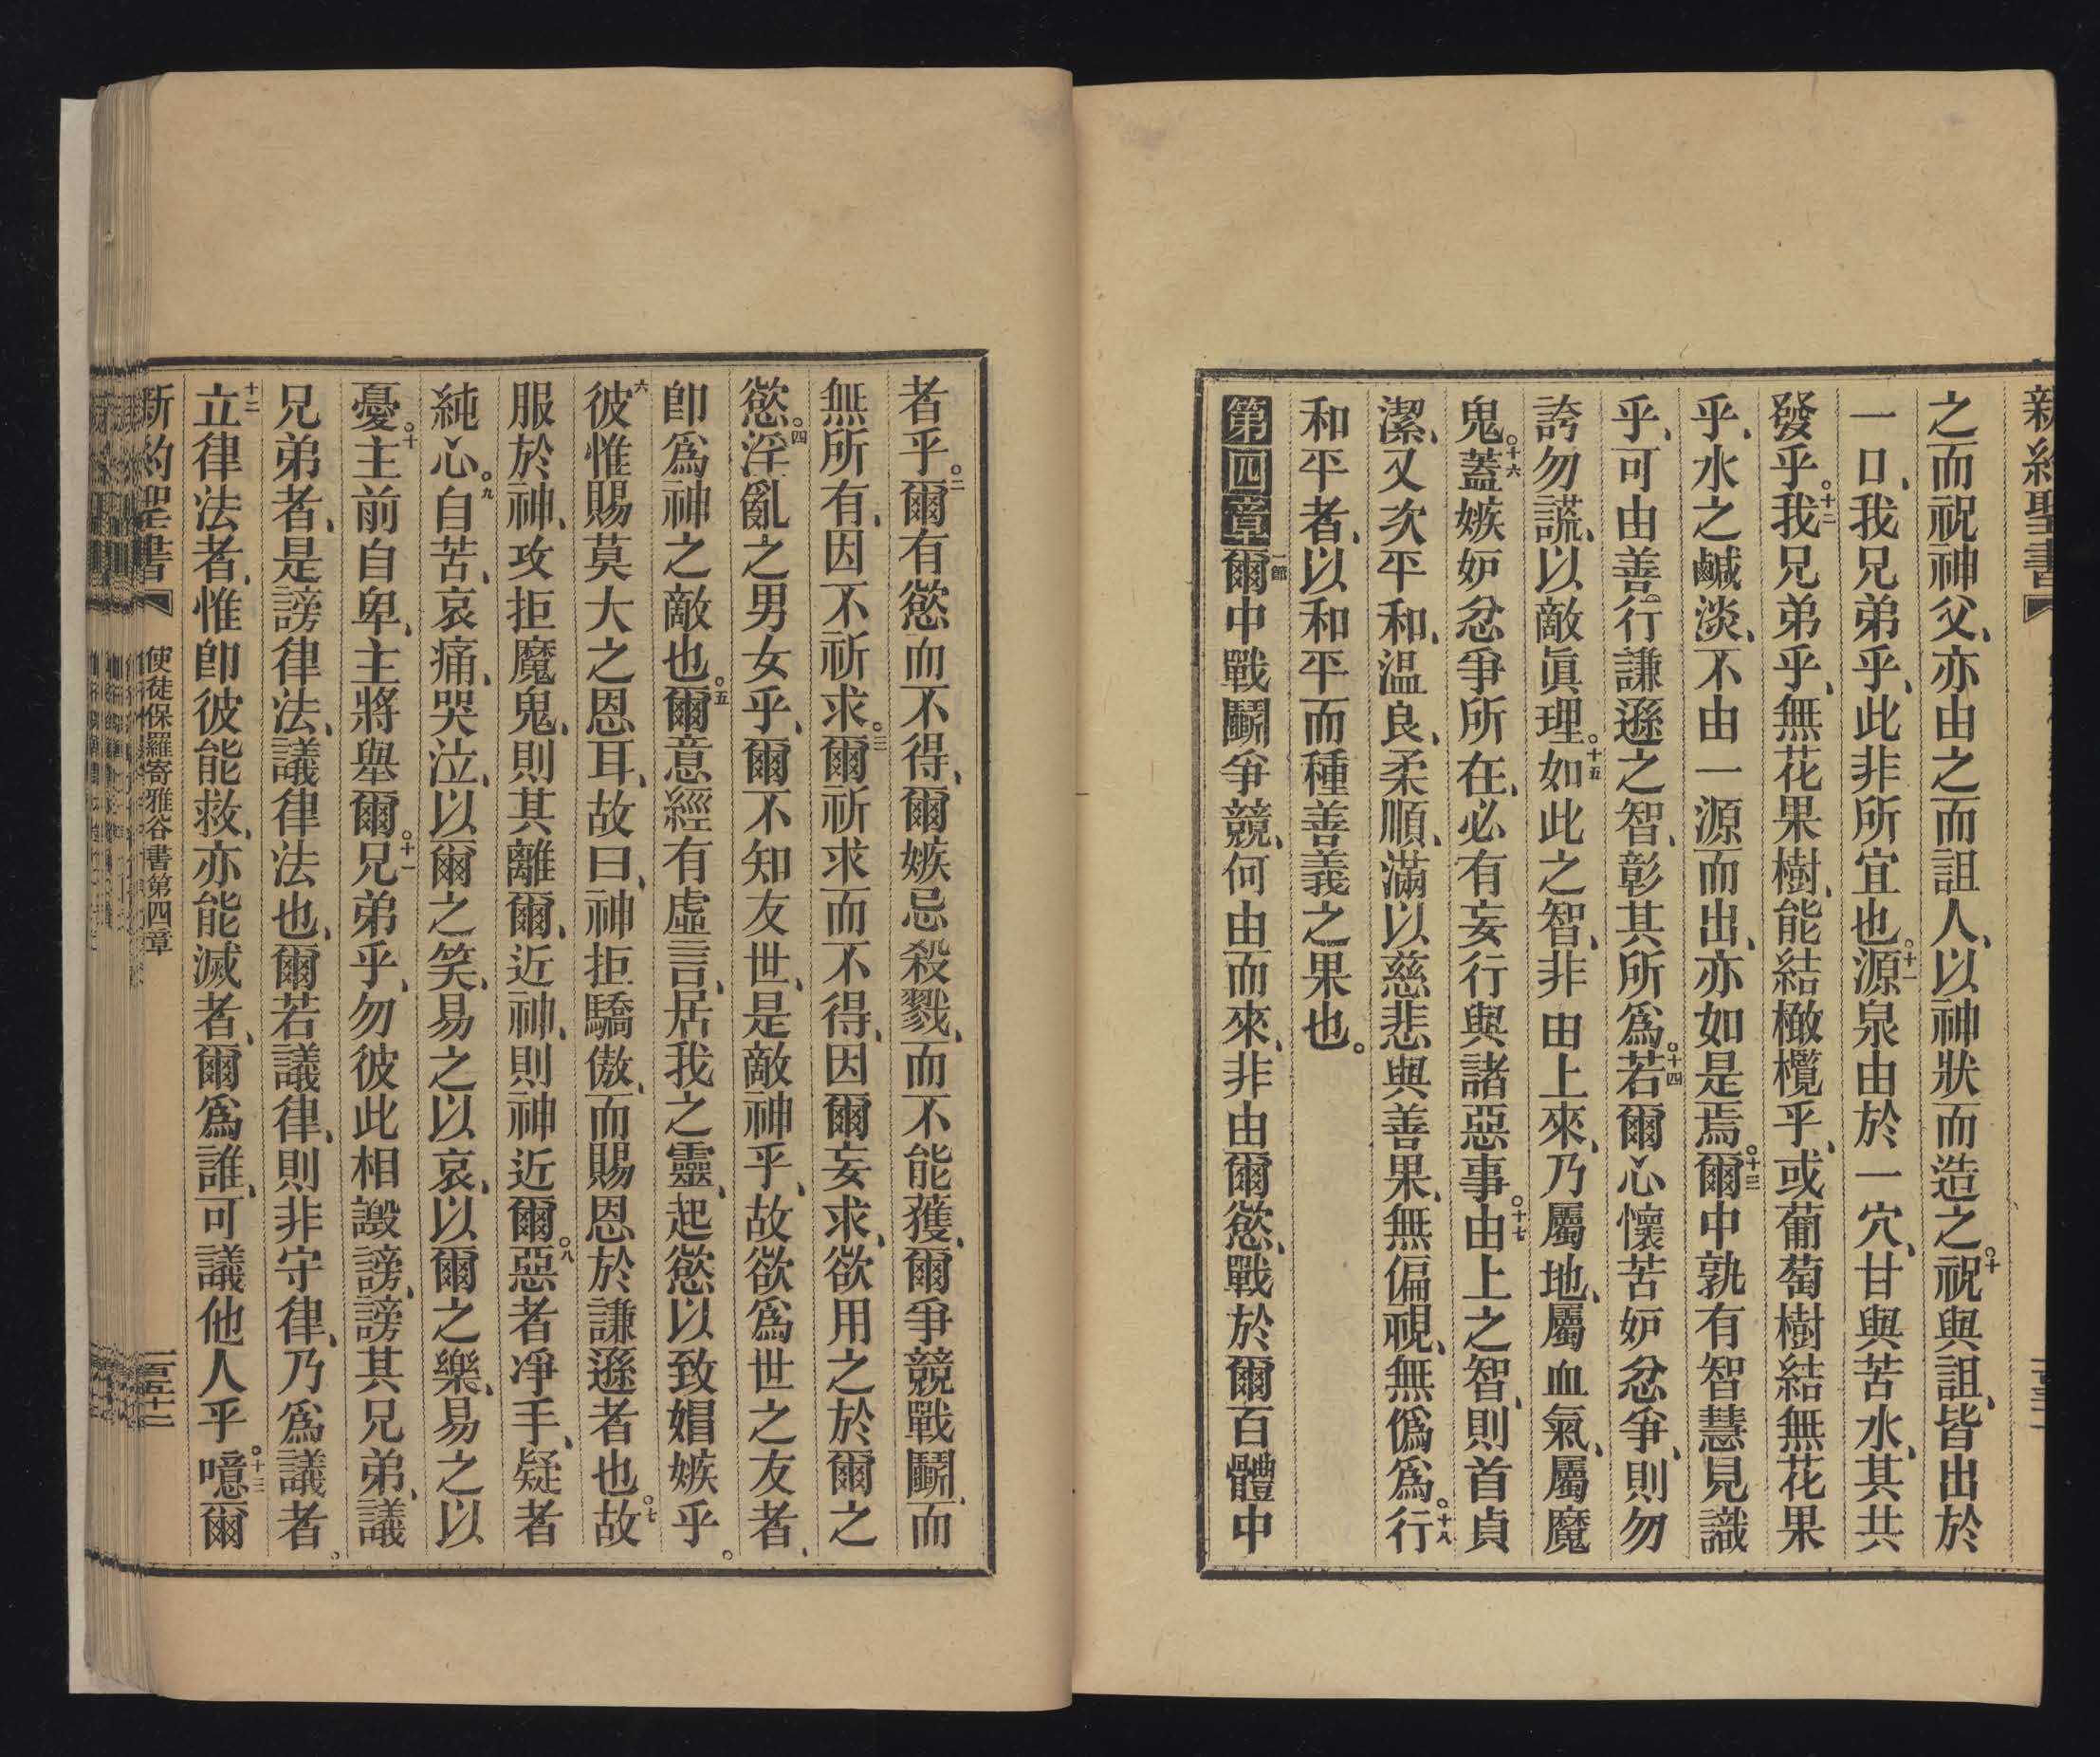 新約聖書
之而祝神父、亦由之而詛人、以神狀而造之。十祝與詛、皆出於
一口、我兄弟乎、此非所宜也。十一源泉由於一穴、甘與苦水、其共
發乎。十二我兄弟乎、無花果樹、能結橄欖乎、或葡萄樹結無花果
乎、水之鹹淡、不由一源而出、亦如是焉。十三爾中孰有智慧見識
乎、可由善行謙遜之智、彰其所爲。十四若爾心懷苦妒忿爭、則勿
誇勿謊、以敵眞理。十五如此之智、非由上來、乃屬地、屬血氣、屬魔
鬼。十六蓋嫉妒忿爭所在、必有妄行與諸惡事。十七由上之智、則首貞
潔、又次平和、温良、柔順、滿以慈悲與善果、無偏視、無僞爲。十八行
和平者、以和平而種善義之果也。
第四章一節爾中戰鬬爭競、何由而來、非由爾慾、戰於爾百體中
者乎。二爾有慾而不得、爾嫉忌殺戮、而不能獲、爾爭競戰鬬、而
無所有、因不祈求。三爾祈求而不得、因爾妄求、欲用之於爾之
慾。四淫亂之男女乎、爾不知友世、是敵神乎、故欲爲世之友者、
卽爲神之敵也。五爾意經有虛言、居我之靈、起慾以致娼嫉乎。
六彼惟賜莫大之恩耳、故曰、神拒驕傲、而賜恩於謙遜者也。七故
服於神、攻拒魔鬼、則其離爾、近神、則神近爾。八惡者凈手、疑者
純心。九自苦、哀痛、哭泣、以爾之笑、易之以哀、以爾之樂、易之以
憂。十主前自卑、主將舉爾。十一兄弟乎、勿彼此相譭謗、謗其兄弟、議
兄弟者、是謗律法、議律法也、爾若議律、則非守律、乃爲議者。
十二立律法者、惟卽彼能救、亦能滅者、爾爲誰、可議他人乎。十三噫爾
新約聖書 使徒保羅寄雅谷書第四章 一百五十二